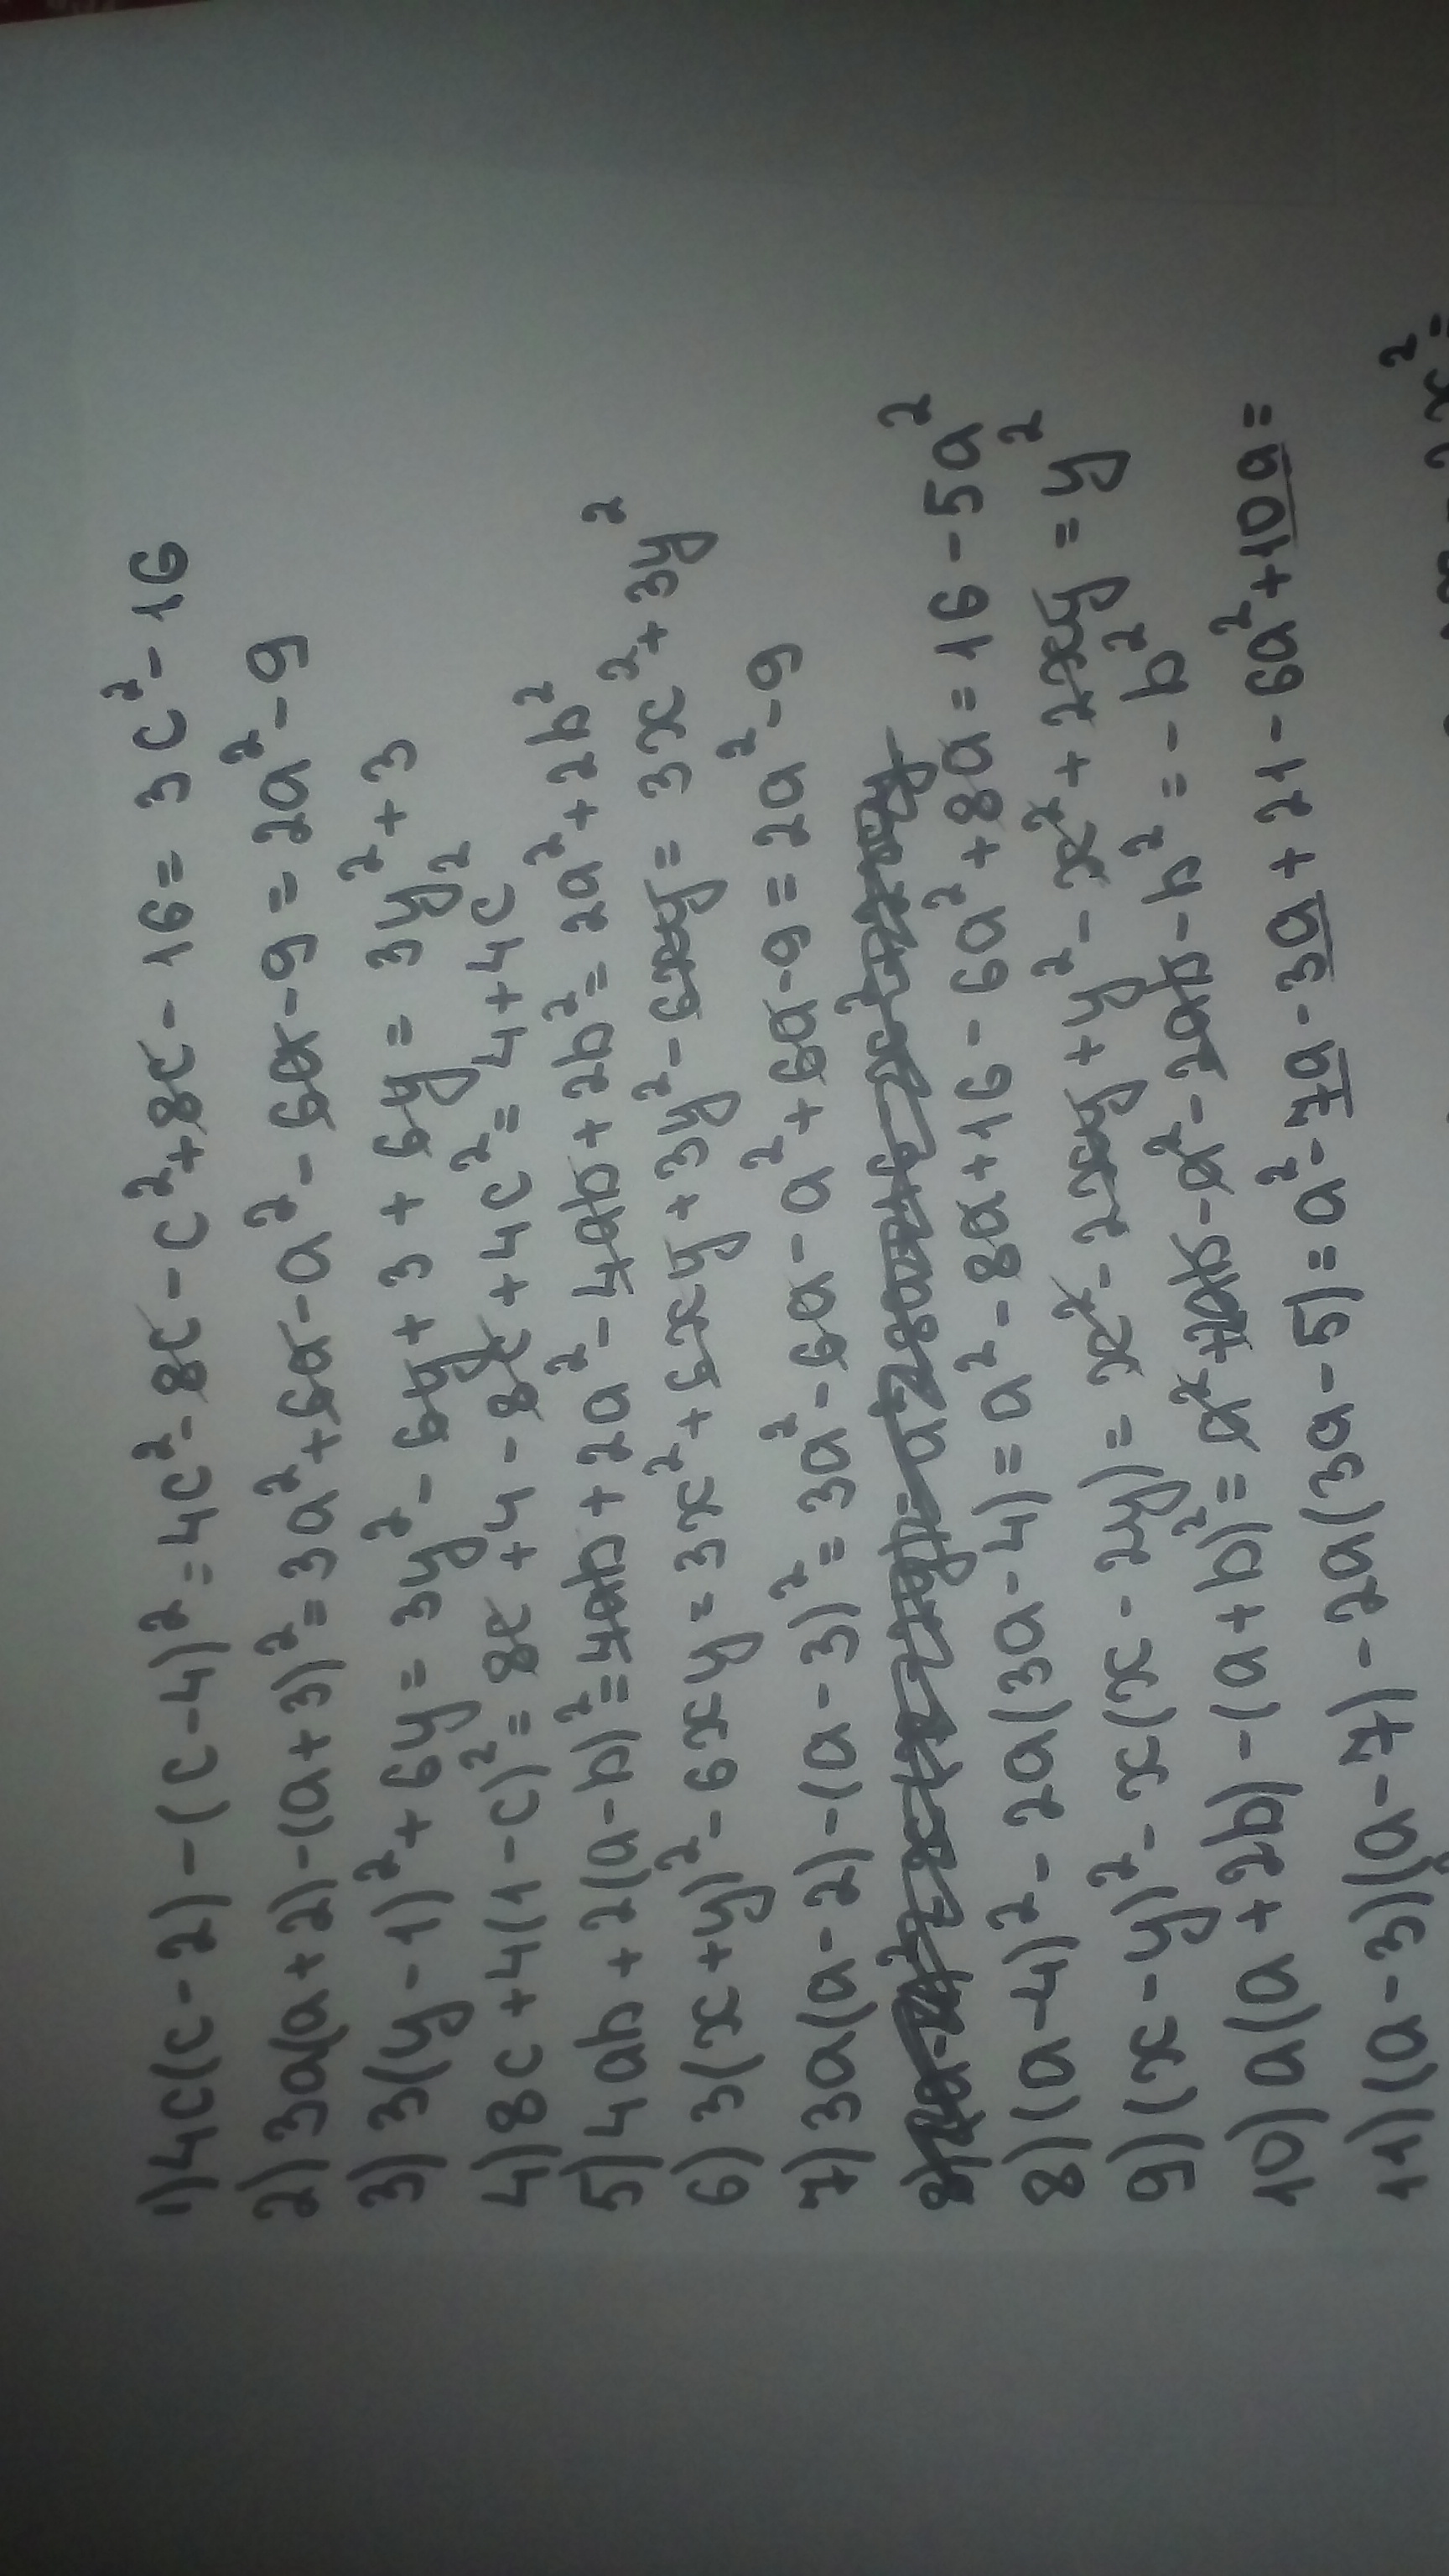 1) 4c(c-2)-(c-4)²=4c²-8c-c²+8c-16=3c²-16
2) 3a(a+2)-(a+3)²=3a²+6a-a²-6a-9=2a²-9
3) 3(y-1)²+6y=3y²-6y+3+6y=3y²+3
4) 8c+4(1-c)²=8c+4-8c+4c²=4+4c²
5) 4ab+2(a-b)²=4ab+2a²-4ab+2b²=2a²+2b²
6) 3(x+y)²-6xy=3x²+6xy+3y²-6xy=3x²+3y²
7) 3a(a-2)-(a-3)²=3a²-6a-a²+6a-9=2a²-9
8) (a-4)²-2a(3a-4)=a²-8a+16-6a²+8a=16-5a²
9) (x-y)²-x(x-2y)=x²-2xy+y²-x²+2xy=y²
10) a(a+2b)-(a+b)²=a²+2ab-a²-2ab-b²=-b²
11) (a-3)(a-7)-2a(3a-5)=a²-7a-3a+21-6a²+10a=